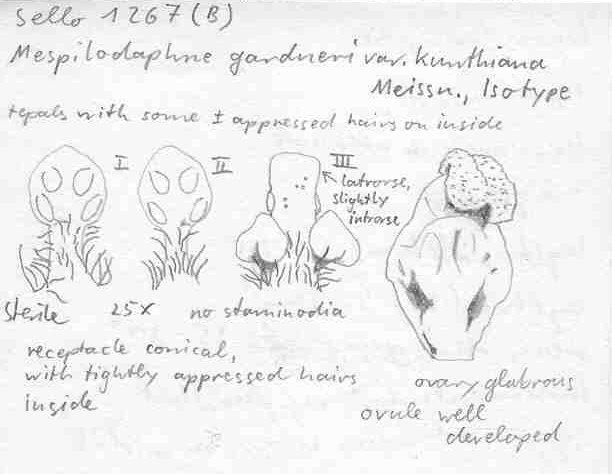 Sello 1267 (B)
Mespilodaphne gardneri var. kunthiana
Meissn., Isotype
tepals with some ± appressed hairs on inside
I II III
latrorse,
slightly
introrse
Sterile 25x no staminodia
receptacle conical,
with tightly appressed hairs
inside
ovary glabrous
ovule well
developed